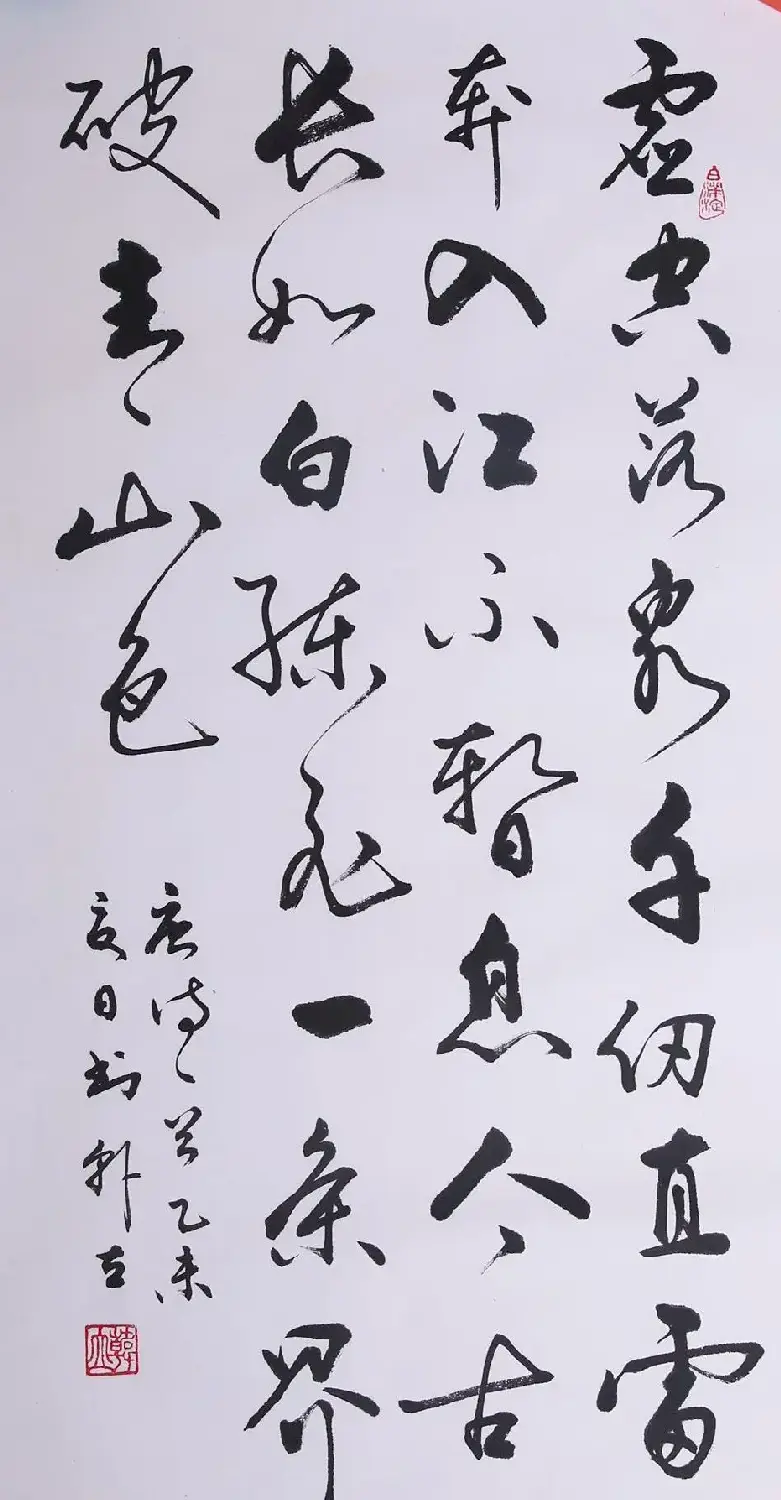 虚空落泉千仞直雷
奔入江不暂息今古
长如白练飞一条界
破青山色
唐诗一首乙未
夏日书韩立